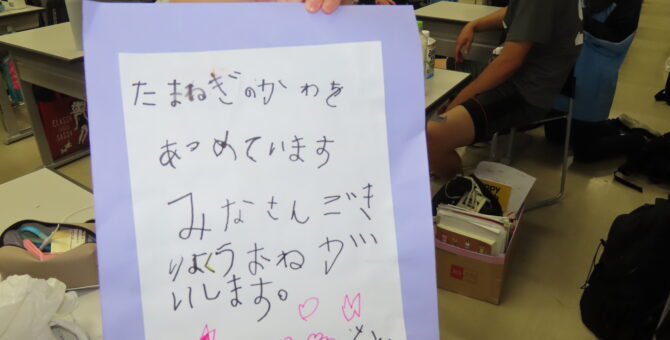 たまねぎのかわを
あつめています
みなさんごき
りょくうおねがい
いします。